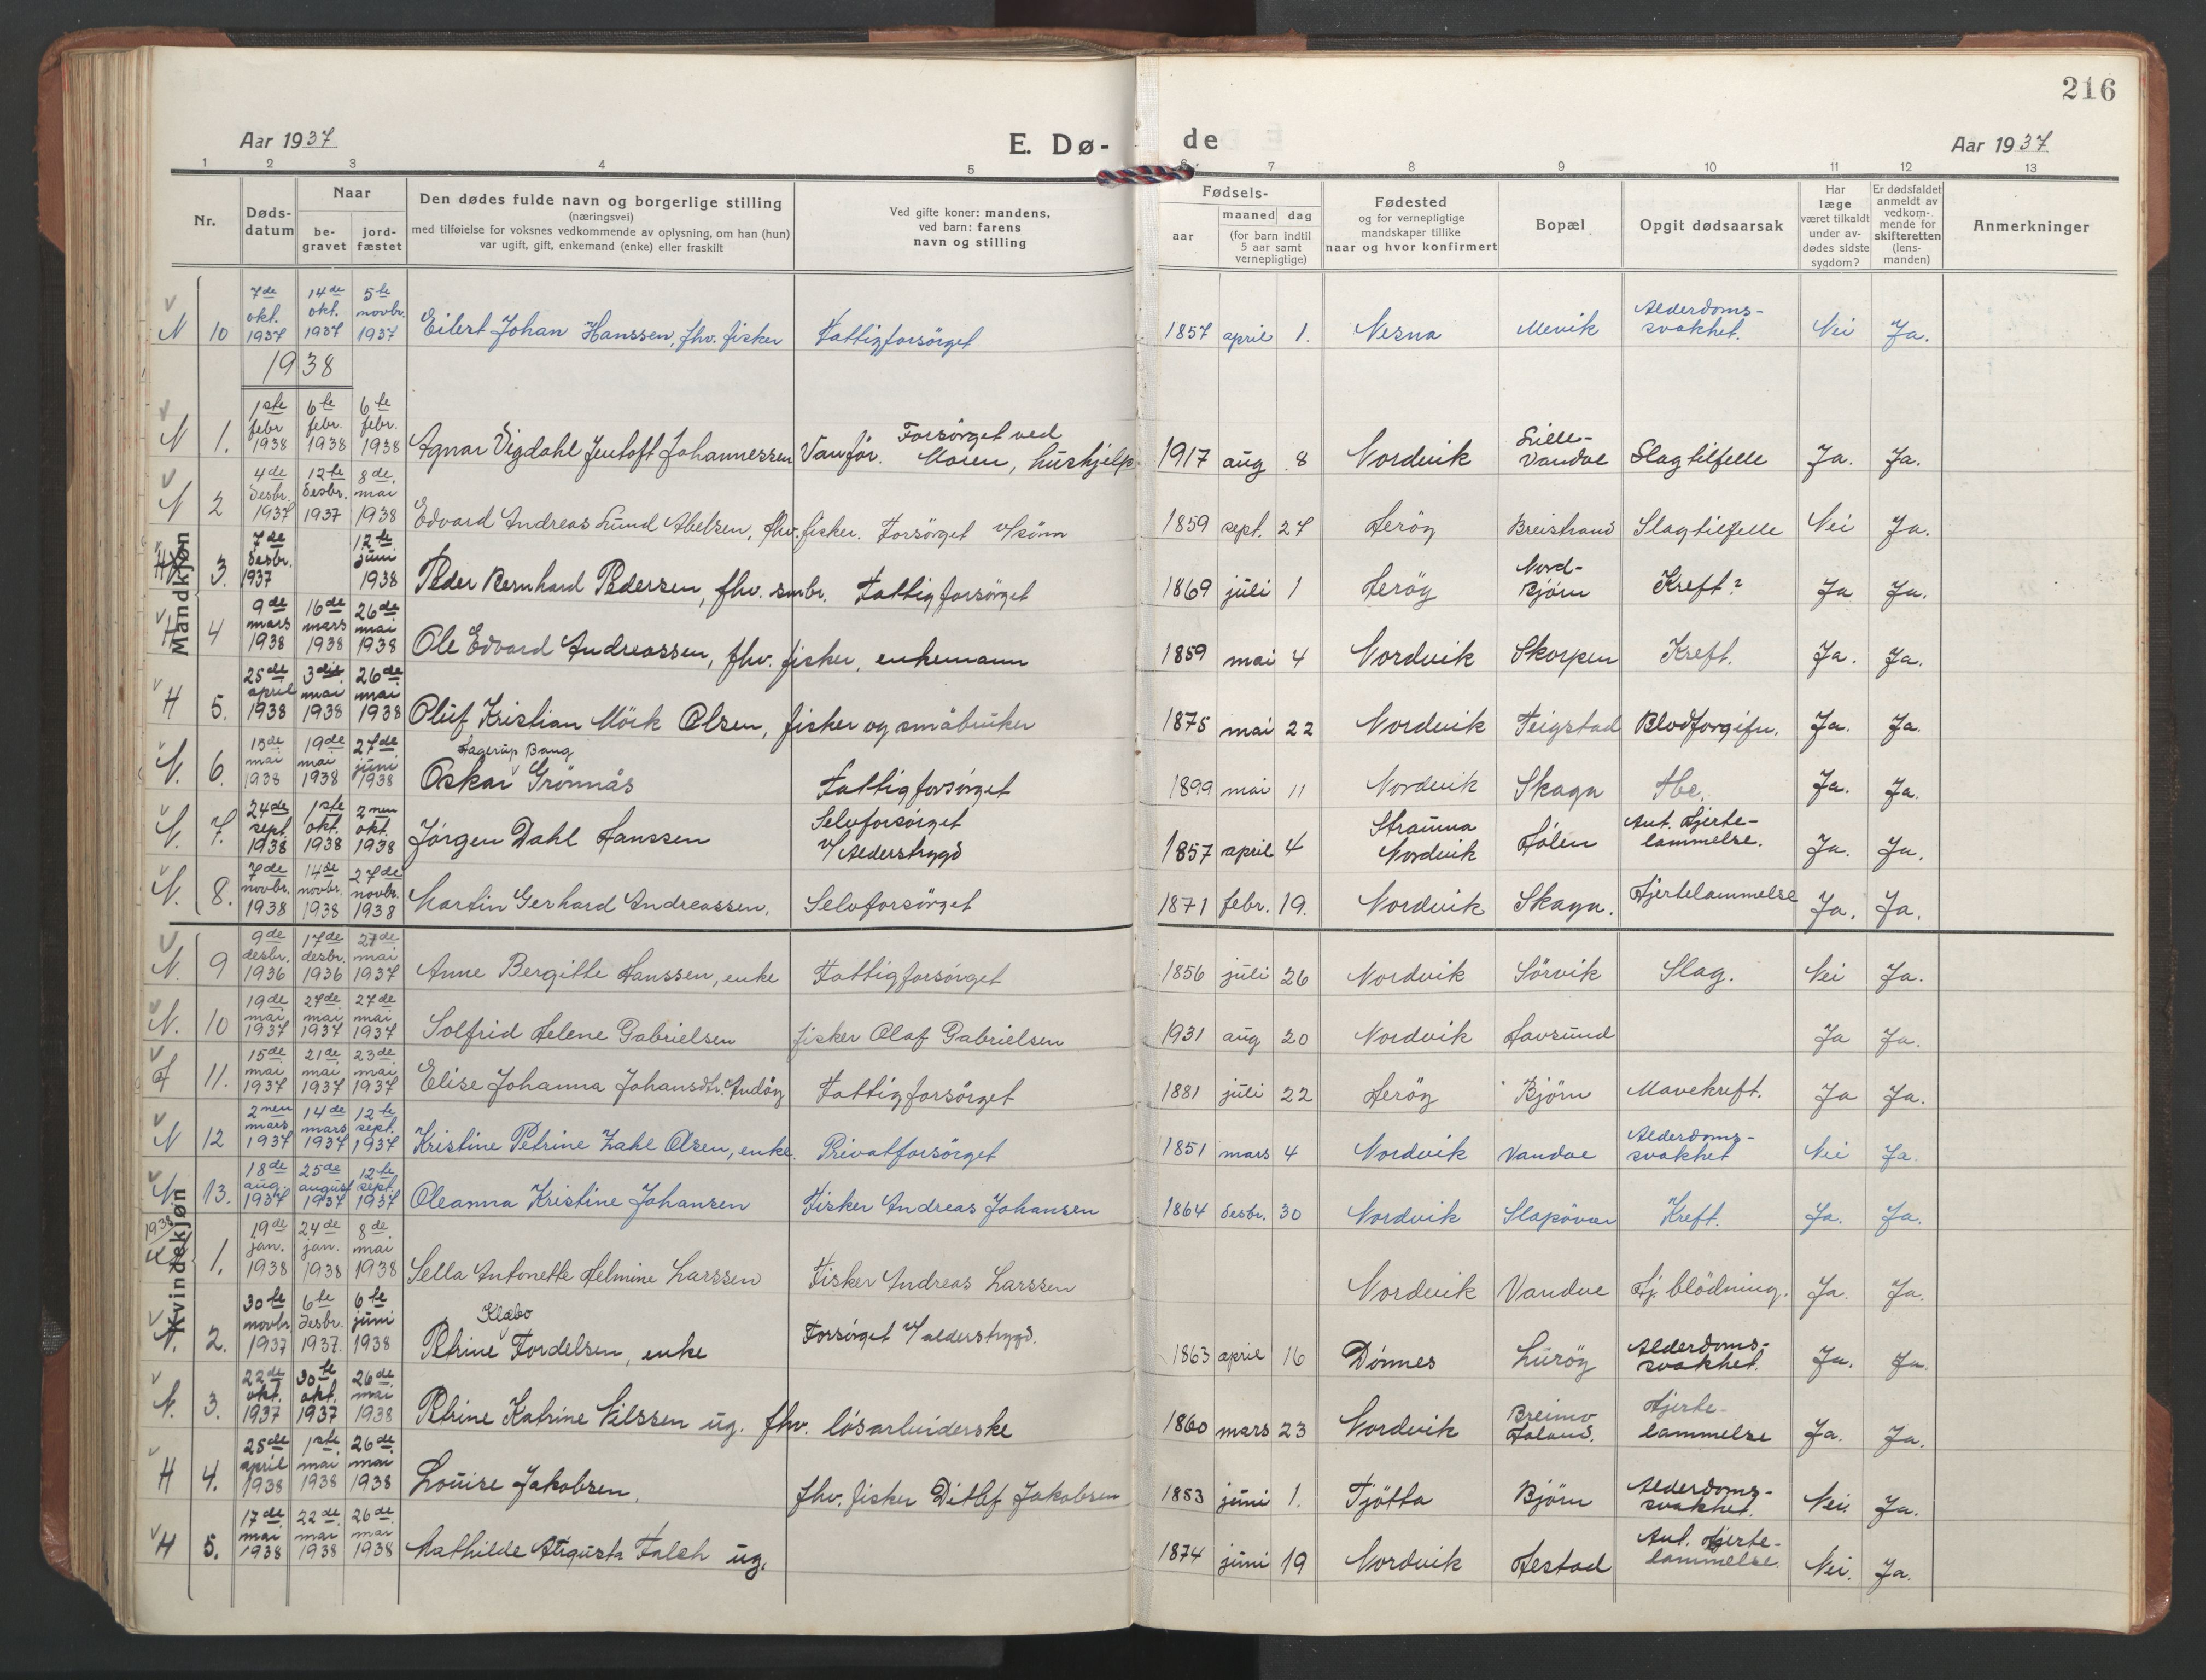 216
Aar 1937
E. Dø-
de
Aar 1937
1 2 3 4 5 6 7 8 9 10 11 12 13
Nr.
Døds-
datum
Naar
be-
gravet
jord-
fæstet
Den dødes fulde navn og borgerlige stilling
(næringsvei)
med tilføielse for voksnes vedkommende av oplysning, om han (hun)
var ugift, gift, enkemand (enke) eller fraskilt
Ved gifte koner: mandens,
ved barn: farens
navn og stilling
Fødsels-
aar
maaned dag
(for barn indtil
5 aar samt
vernepligtige)
Fødested
og for vernepligtige
mandskaper tillike
naar og hvor konfirmert
Bopæl
Opgit dødsaarsak
Har
læge
været tilkaldt
under av-
dødes sidste
sygdom?
Er dødsfaldet
anmeldt av
vedkom-
mende for
skifteretten
(lens-
manden)
Anmerkninger
Mandkjøn
N 10 7de okt. 1937 14de okt. 1937 5te novbr. 1937 Eilert Johan Hanssen, fhv. fisker Fattigforsörget 1857 april 1. Nesna Mevik Alderdoms-svakhet. Nei Ja.
1938
N 1. 1ste febr 1938 6te febr. 1938 6te febr. 1938 Agnar Vigdahl Jentoft Johannessen Vanför. Forsörget ved Moren, hushjelp 1917 aug 8 Nordvik Lille-Vandve Slagtilfelle Ja. Ja.
N 2 4de desbr. 1937 12te desbr. 1937 8de mai 1938 Edvard Andreas Lund Abelsen, fhv. fisker. Forsörget v/sönn 1859 sept. 27 Heröy Breistrand Slagtilfelle Nei Ja.
H 3. 7de desbr. 1937 12te juni 1938 Peder Bernhard Pedersen, fhv. smbr. Fattigforsörget 1869 juli 1 Heröy Nord-Bjørn Kreft? Ja Ja.
H 4 9de mars 1938 16de mars 1938 26de mai 1938 Ole Edvard Andreassen, fhv. fisker, enkemann 1859 mai 4 Nordvik Skorpen Kreft. Ja. Ja.
H 5. 25de april 1938 3die mai 1938 26de mai 1938 Oluf Kristian Mörk Olsen, fisker og småbruker 1875 mai 22 Nordvik Teigstad Blodforgifn. Ja. Ja.
N. 6. 13de mai 1938 19de mai 1938 27de juni 1938 Oskar Hagerup Bang Grönnås Fattigforsörget 1899 mai 11 Nordvik Skaga Tbc. Ja. Ja.
N. 7. 24de sept. 1938 1ste okt. 1938 2nen okt. 1938 Jörgen Dahl Hanssen Selvforsörget v/Alderstrygd 1857 april 4 Strauma Nordvik Hølen Ant. Hjerte-lammelse. Ja. Ja.
N. 8. 7de novbr. 1938 14de novbr. 1938 27de novbr. 1938 Martin Gerhard Andreassen, Selvforsörget 1871 febr. 19. Nordvik Skaga. Hjertelammelse Ja. Ja.
Kvindekjøn
N. 9 9de desbr. 1936 17de desbr. 1936 27de mai 1937 Anne Bergitte Hanssen, enke Fattigforsörget 1856 juli 26 Nordvik Sörvik Slag. Nei Ja.
N. 10 19de mai 1937 27de mai 1937 27de mai 1937 Solfrid Helene Gabrielsen fisker Olaf Gabrielsen 1931 aug 20 Nordvik Havsund Ja Ja.
H 11. 15de mai 1937 21de mai 1937 23de mai 1937 Elise Johanna Johansdtr. Andöy Fattigforsörget 1881 juli 22 Heröy Bjørn Mavekreft. Ja Ja.
N 12 2nen mars 1937 14de mars 1937 12te sept. 1937 Kristine Petrine Zahl Olsen, enke. Privatforsörget 1851 mars 4 Nordvik Vandve Alderdoms-svakhet Nei Ja.
N. 13. 18de aug. 1937 25de august 1937 12te sept. 1937 Oleanna Kristine Johansen Fisker Andreas Johansen 1864 desbr. 30 Nordvik Slapövær Kreft. Ja. Ja.
1938
1. 19de jan. 1938 24de jan. 1938 8de mai 1938 Sella Antonette Helmine Larssen Fisker Andreas Larssen Nordvik Vandve Hj. blödning. Ja. Ja.
N. 2. 30te novbr. 1937 6te desbr. 1937. 6te juni 1938 Petrine Klæbo Fordelsen, enke Forsörget v/alderstrygd. 1863 april 16 Dönnes Luröy Alderdoms-svakhet. Ja. Ja.
N. 3. 22de okt. 1937 30te okt. 1937 26de mai 1938 Petrine Katrine Nilssen ug. fhv. lösarbeiderske 1860 mars 23 Nordvik Breimo Haland. Hjerte-lammelse Ja. Ja.
H 4. 25de april 1938 1ste mai 1938 26de mai 1938 Louise Jakobsen. fhv. fisker Ditlef Jakobsen 1853 juni 1. Tjötta Bjørn Alderdoms-svakhet. Nei. Ja.
H 5. 17de mai 1938 22de mai 1938 26de mai 1938 Mathilde Augusta Falch ug. 1874 juni 19 Nordvik Hestad Ant. Hjerte-lammelse. Nei. Ja.